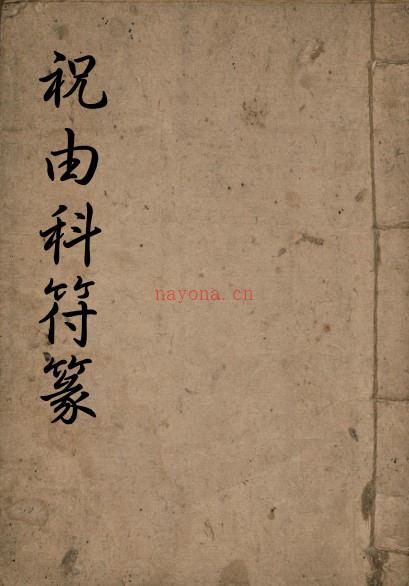 祝由科符篆
nayona.cn